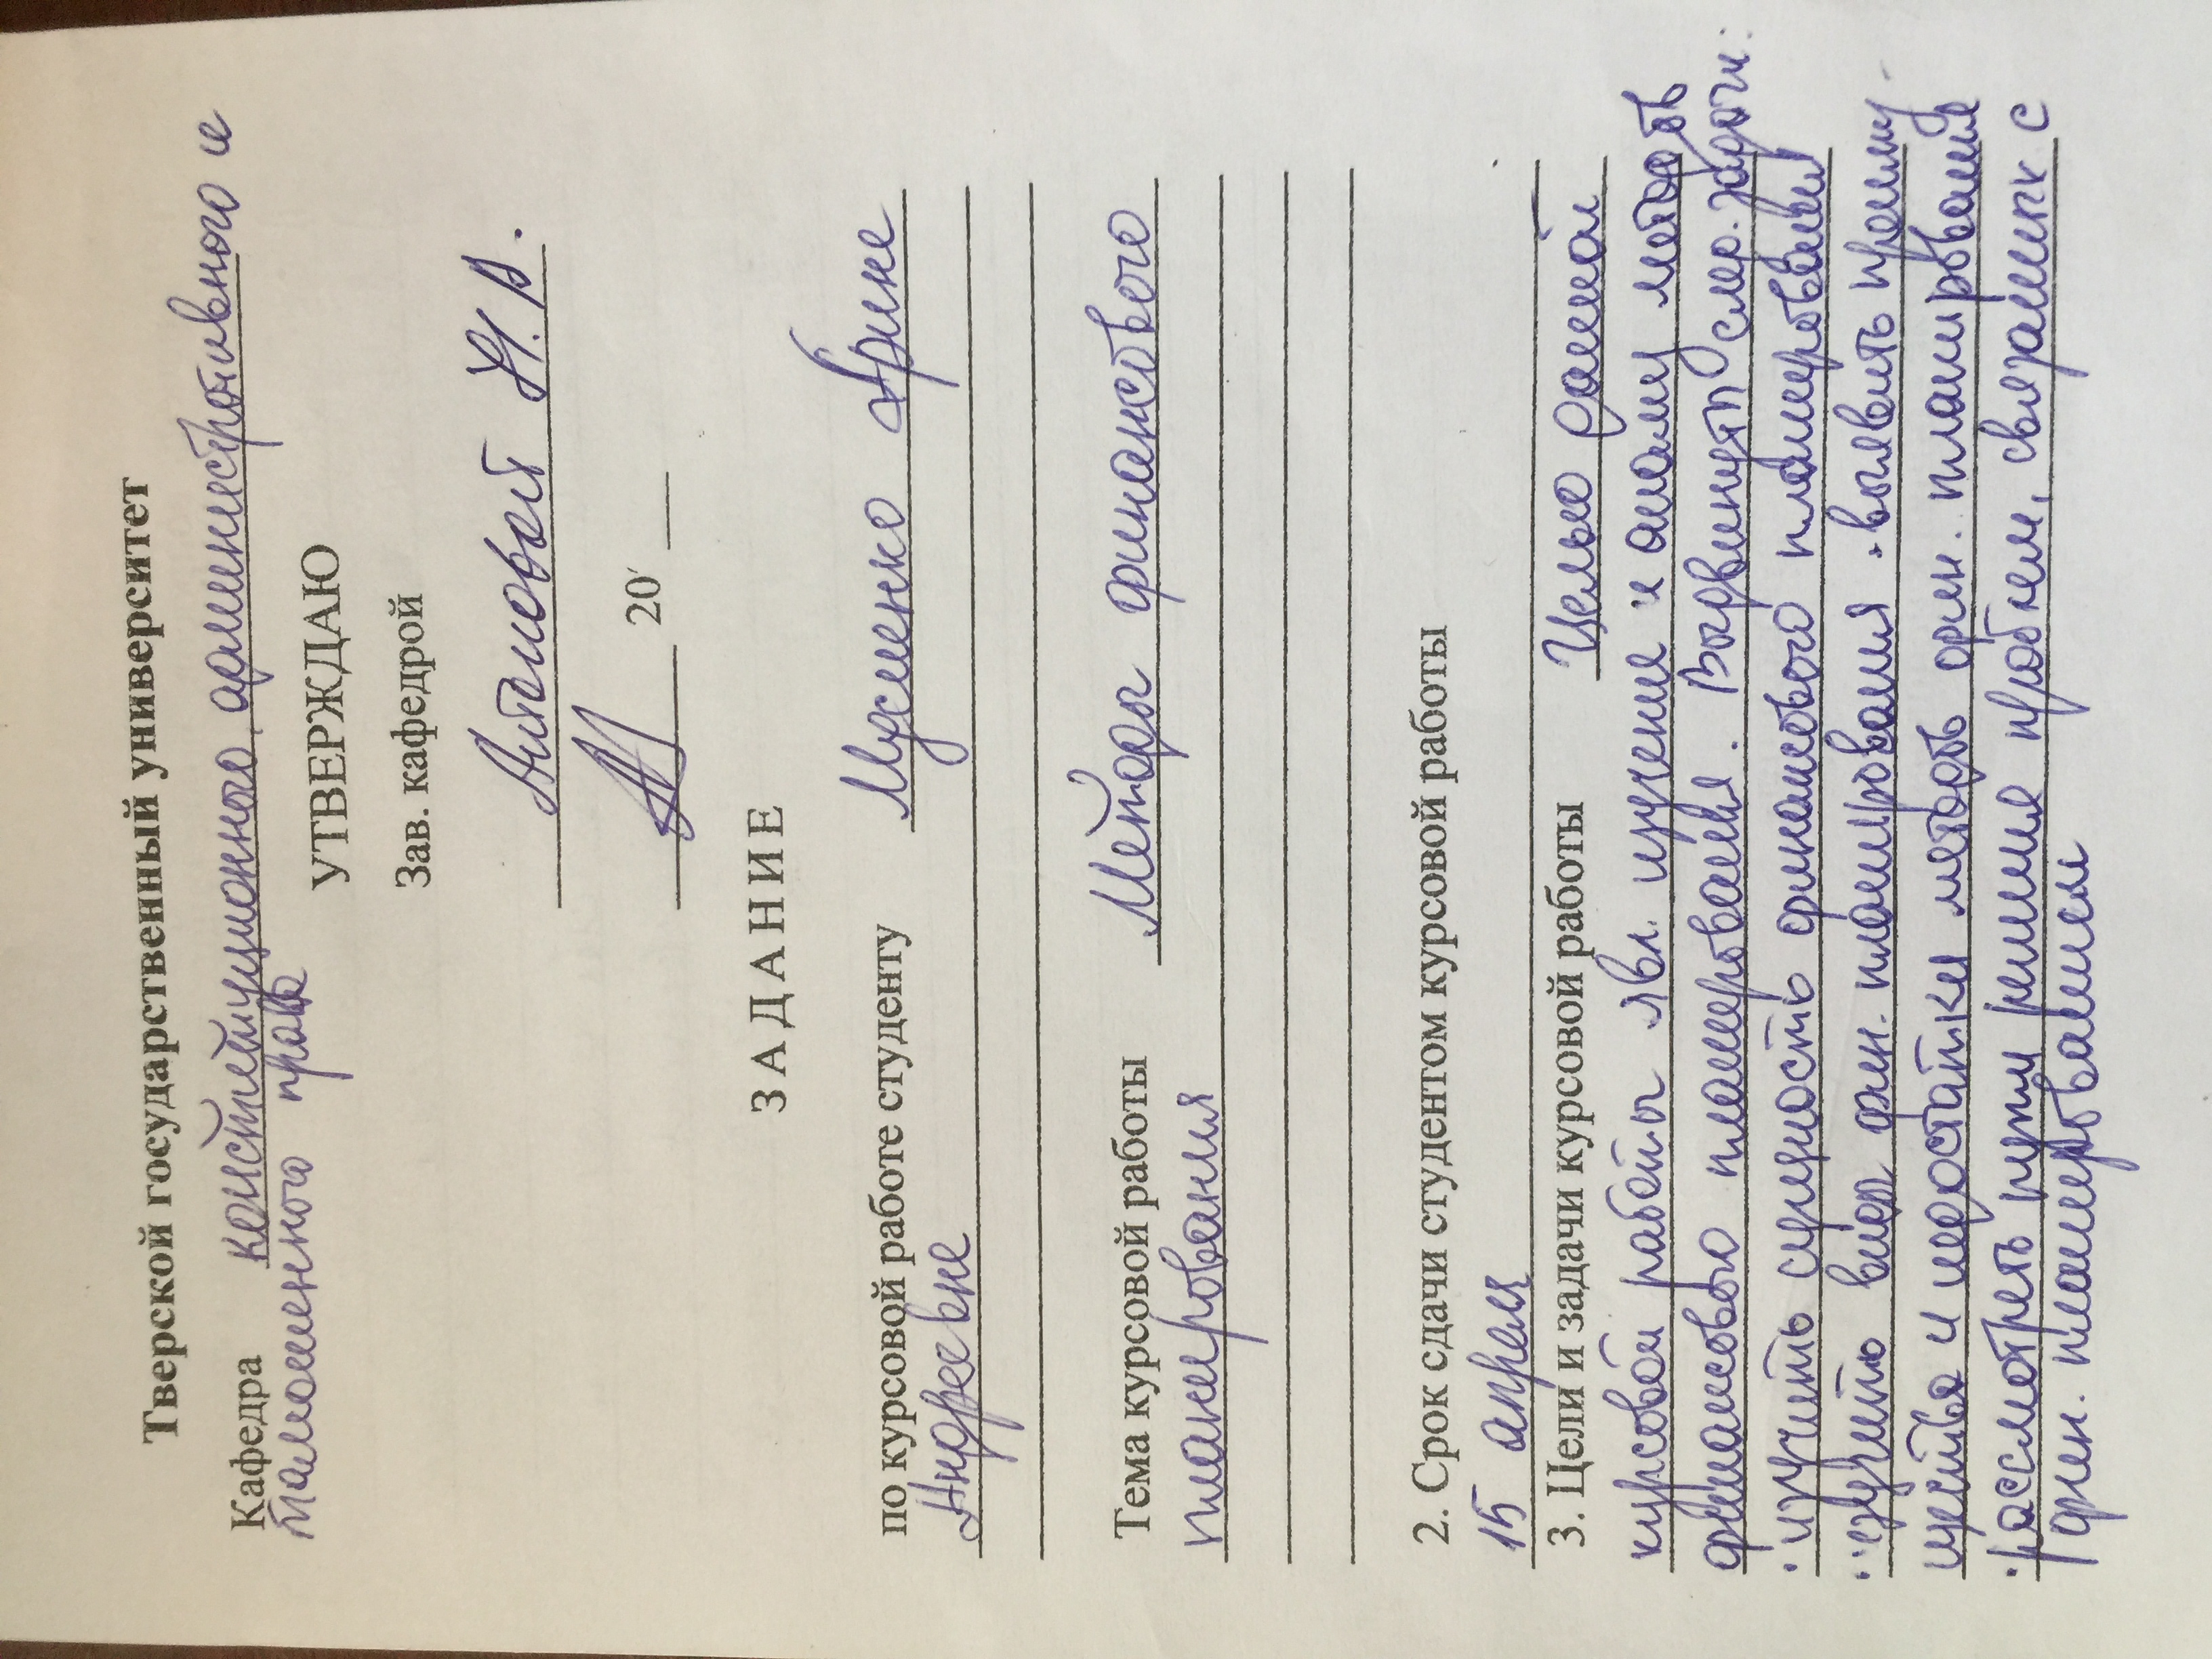 Тверской государственный университет
Кафедра конституционного, административного и
таможенного права
УТВЕРЖДАЮ
Зав. кафедрой
Н.А.
20
ЗАДАНИЕ
по курсовой работе студенту Мусиенко Арине
Андреевне
Тема курсовой работы Методы финансового
планирования
2. Срок сдачи студентом курсовой работы
15 апреля
3. Цели и задачи курсовой работы Целью данной
курсовой работы явл. изучение и анализ методов
финансового планирования. Выдвинуты след. задачи:
· изучить сущность финансового планирования
· изучить виды фин. планирования · выявить преиму
щества и недостатки методов фин. планирования
· рассмотреть пути решения проблем, связанных с
фин. планированием